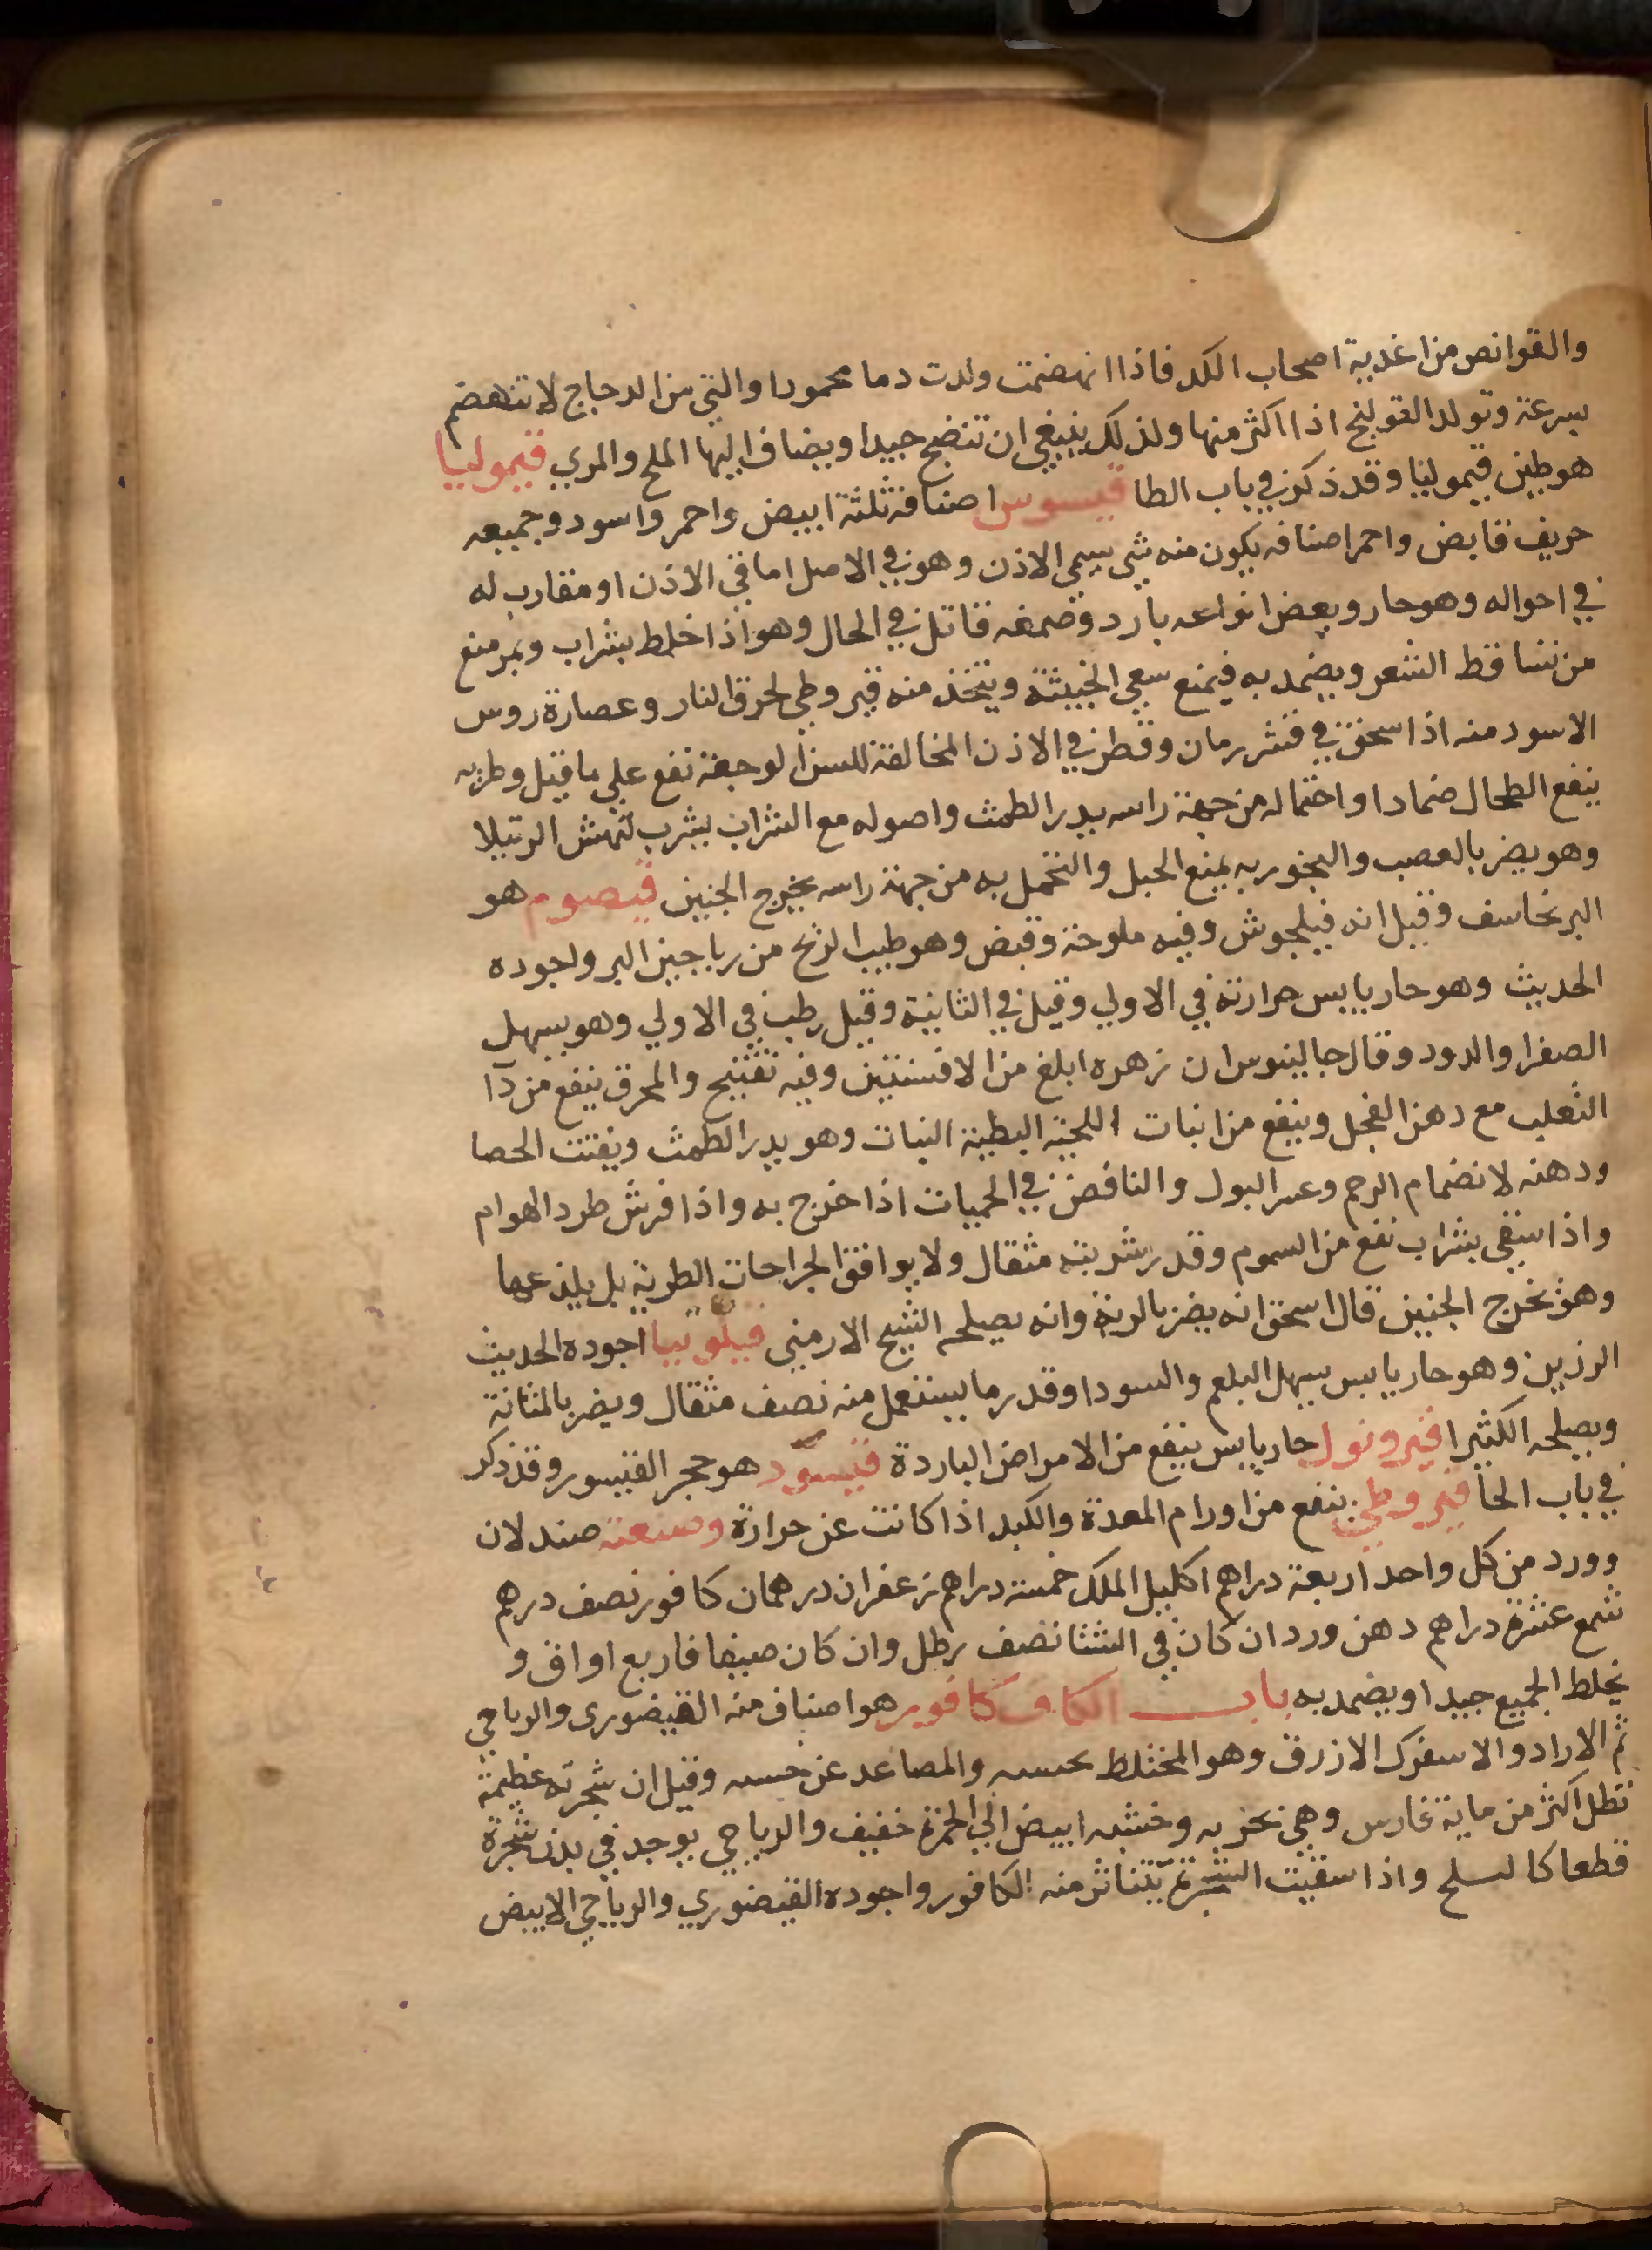 والقوانص من اغذية اصحاب الكد فاذا انهضمت ولدت دما محمودا والتي من الدجاج لا تنهضم
بسرعة وتولد القولنج اذا اكثر منها ولذلك ينبغي ان تنضج جيدا ويضاف اليها الملح والمري قيموليا
هو طين قيموليا وقد ذكر في باب الطا قيسوس اصنافه ثلثة ابيض واحمر واسود وجميعه
حريف قابض واحمر اصنافه يكون منه شي يسمي الاذن وهو في الاصل اما في الاذن او مقارب له
في احواله وهو حار وبعض انواعه بارد وصمغه قاتل في الحال وهو اذا خلط بشراب ومر منع
من تساقط الشعر ويضمد به فيمنع سعي الخبيثة ويتخذ منه قيروطي لحرق النار وعصارة روس
الاسود منه اذا سخن في قشر رمان وقطر في الاذن المخالفة للسن الوجعة نفع علي ما قيل وطريه
ينفع الطحال ضمادا واحتماله من جهة راسه يدر الطمث واصوله مع الشراب يشرب لنهش الرتيلا
وهو يضر بالعصب والبخور به يمنع الحبل والتحمل به من جهة راسه يخرج الجنين قيصوم هو
البرنجاسف وقيل انه فيلجوش وفيه ملوحة وقبض وهو طيب الريح من رياحين البر واجوده
الحديث وهو حار يابس حرارته في الاولي وقيل في الثانية وقيل رطب في الاولي وهو يسهل
الصفرا والدود وقال جالينوس ان زهره ابلغ من الافسنتين وفيه تفتيح والمحرق ينفع من دآ
الثعلب مع دهن الفجل وينفع من انبات اللحية البطية النبات وهو يدر الطمث ويفتت الحصا
ودهنه لانضمام الرحم وعسر البول والنافض في الحميات اذا خرج به واذا فرش طرد الهوام
واذا سقي بشراب نفع من السموم وقدر شربته مثقال ولا يوافق الجراحات الطرية بل يلذعها
وهو يخرج الجنين قال اسحق انه يضر بالرية وانه يصلحه الشيح الارمني فيلونيا اجوده الحديث
الرزين وهو حار يابس يسهل البلغم والسودا وقدر ما يستعمل منه نصف مثقال ويضر بالمثانة
ويصلحه الكثيرا قيرونول حار يابس ينفع من الامراض الباردة قيسور هو حجر القيسور وقد ذكر
في باب الحا قيروطي ينفع من اورام المعدة والكبد اذا كانت عن حرارة وصنعته صندلان
وورد من كل واحد اربعة دراهم اكليل الملك خمسة دراهم زعفران درهمان كافور نصف درهم
شمع عشرة دراهم دهن ورد ان كان في الشتا نصف رطل وان كان صيفا فاربع اواق و
يخلط الجميع جيدا ويضمد به باب الكاف كافور هو اصناف منه القيصوري والرباحي
ثم الاراد والاسفرك الازرق وهو المختلط بخشبه والمصاعد عن خشبه وقيل ان شجرته عظيمة
تظل اكثر من ماية فارس وهي بحرية وخشبه ابيض الي الحمرة خفيف والرباحي يوجد في بدن شجرة
قطعا كالسلح واذا سقيت الشجرة يتناثر منه الكافور واجوده القيصوري والرباحي الابيض